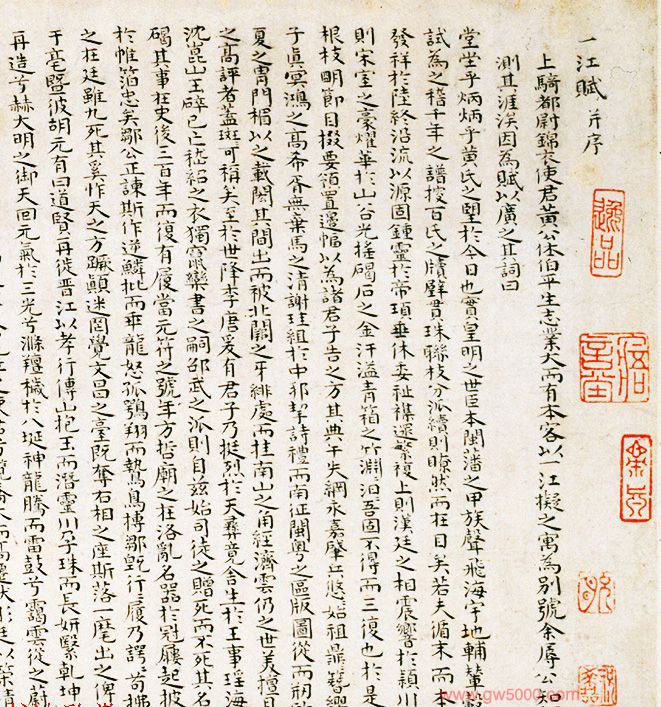 一江賦 并序
上騎都尉錦衣使君黃公伯平生志業大而有本客以一江擬之寓為別號余辱公知
測其涯涘因為賦以廣之其詞曰
堂堂乎炳炳乎黃氏之望於今日也實皇明之世臣本閩藩之甲族聲飛海宇地輔輦
試為之稽千年之譜搜百氏之牘辟貫珠聯枝分派續則瞭然而在目矣若夫循末而本
發祥於陸終沿流以源固鍾靈於帝頊垂休委祉襟遝繁複上則漢廷之相震響於潁川
則宋室之豪燿華於山谷光搖碣石之金汗溢青箱之竹淵洎吾固不得而三復也於是
根枝明節目掇要領置邊幅以為諸君子告之方其典午失綱永嘉肇亡悠悠始祖鼎簪纓
子真冥鴻之高希胥無棄馬之清謝珪組於中邦挈詩禮而南征閩奧之區版圖從而
夏之胄門楣以之載閎其間出而被北闕之牙緋處而挂南山之角經濟雲仍之世美擅
之高評者蓋斑可稱矣至於世降李唐爰有君子乃挺烈於天彝竟舍生於王事瑶海
沈崑山王碎已亡嵇紹之衣獨褒欒書之嗣邵武之派則自茲始司徒之贈死而不死其名
碣其事在史後三百年而復有履當元符之號年方哲廟之在洛亂名器於冠屨起
於帷箔忠矣鄒公正諫斯作逆鱗批而乖龍怒孤鶚翔而鷙鳥搏鄒既行履乃諤苟
之在廷雖九死其奚怍天之方蹶顛迷罔覺文昌之臺既奪右相之座斯落一麾出之俾
于亳暨彼胡元有曰道賢再徙晉江以孝行傳山抱玉而潛靈川孕珠而長妍繄乾坤
再造兮赫大明之御天回元氣於三光兮滌羶穢於八埏神龍騰而雷鼓兮靄雲從之蔚
逸品
www.gw5000.com